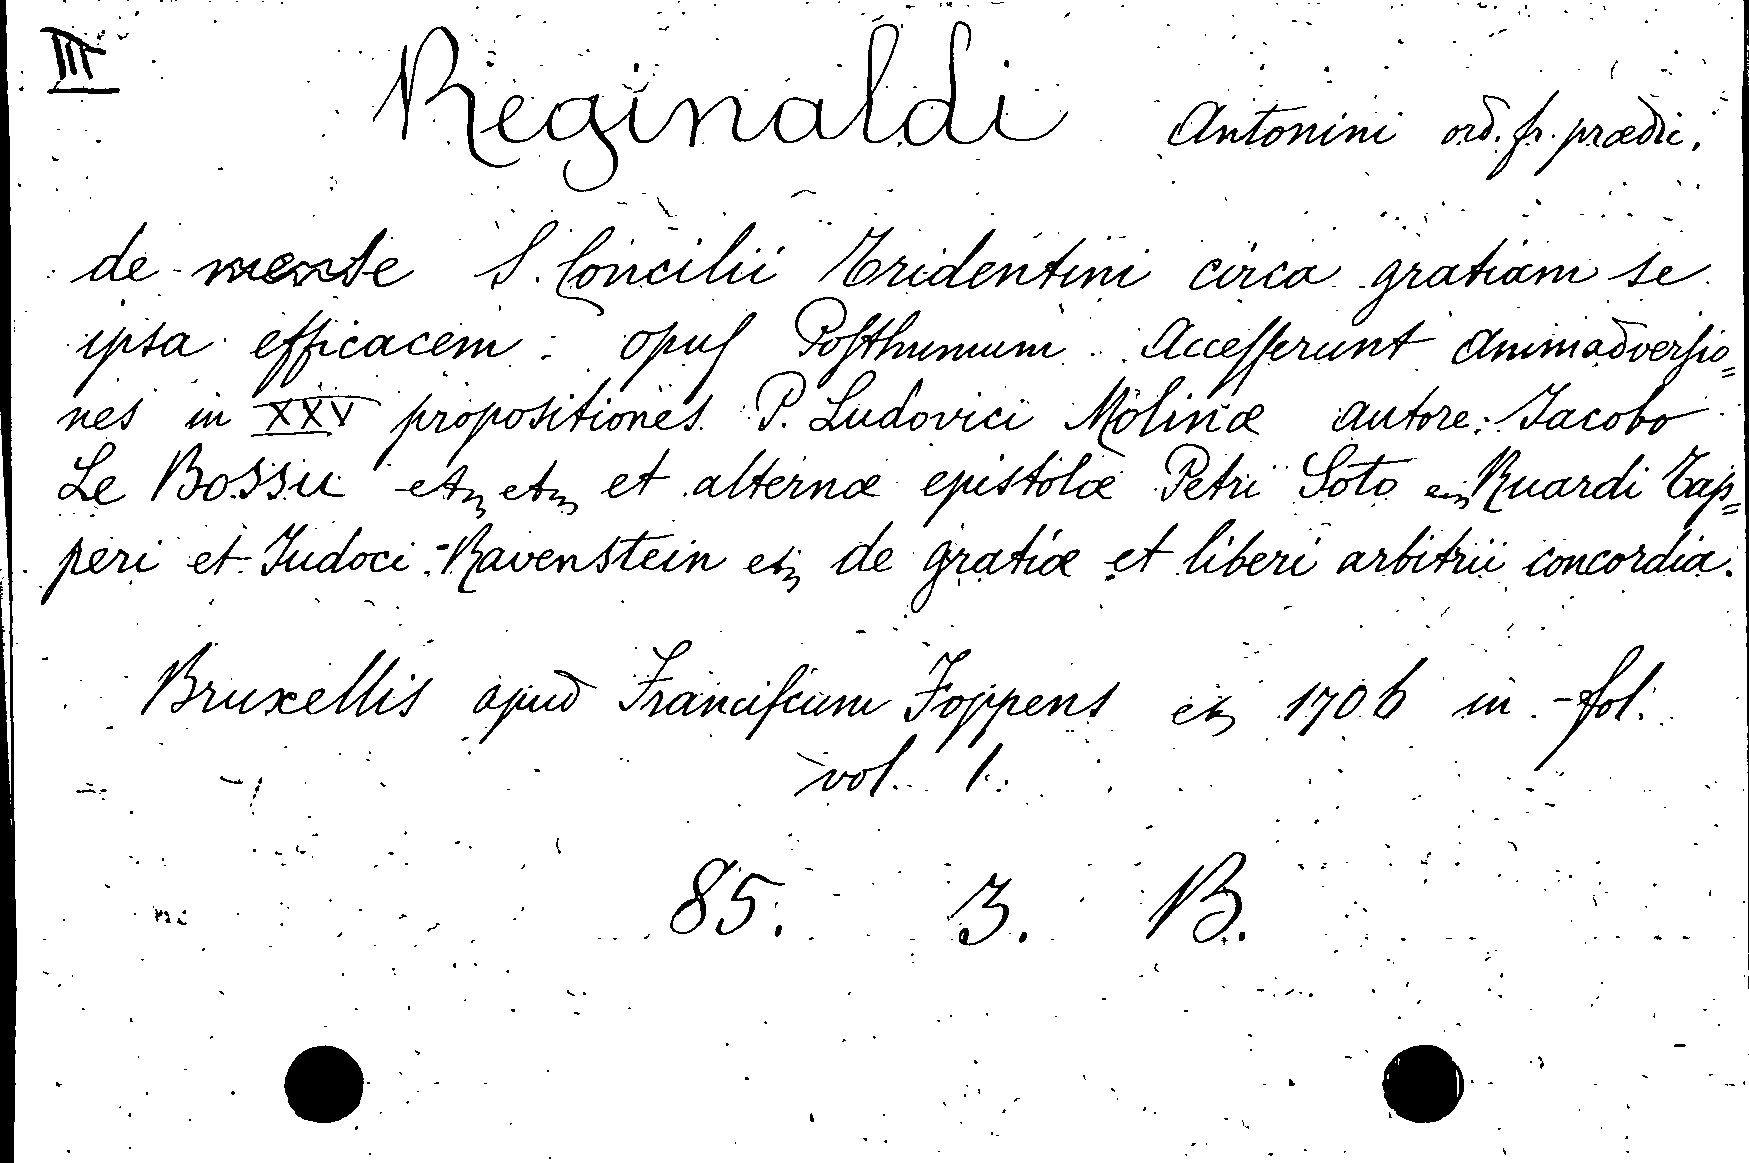 III
Reginaldi Antonini ord. fr. prædic.
de mente S. Concilii Tridentini circa gratiam se
ipsa efficacem: opuſ Poſthumum. Acceſſerunt animadverſio=
nes in XXV propositiones P. Ludovici Molinæ autore Jacobo
Le Bossu etc etc et alternæ epistolæ Petri Soto Ruardi Tap=
peri et Judoci Ravenstein etc de gratiæ et liberi arbitrii concordia.
Bruxellis apud Franciſcum Foppens etc 1706 in-fol.
vol. 1.
85. 3. B.